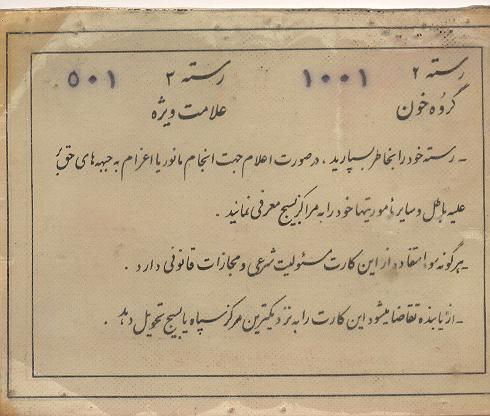 رسته ۲ ۱۰۰۱ رسته ۳ ۵۰۱
گروه خون علامت ویژه
- رسته خود را بخاطر بسپارید ، در صورت اعلام جهت انجام مانور یا اعزام به جبهه های حق بر
علیه باطل و سایر مأموریتها خود را به مراکز بسیج معرفی نمائید .
- هرگونه سوء استفاده از این کارت مسئولیت شرعی و مجازات قانونی دارد .
- از یابنده تقاضا میشود این کارت را به نزدیکترین مرکز سپاه یا بسیج تحویل دهد .